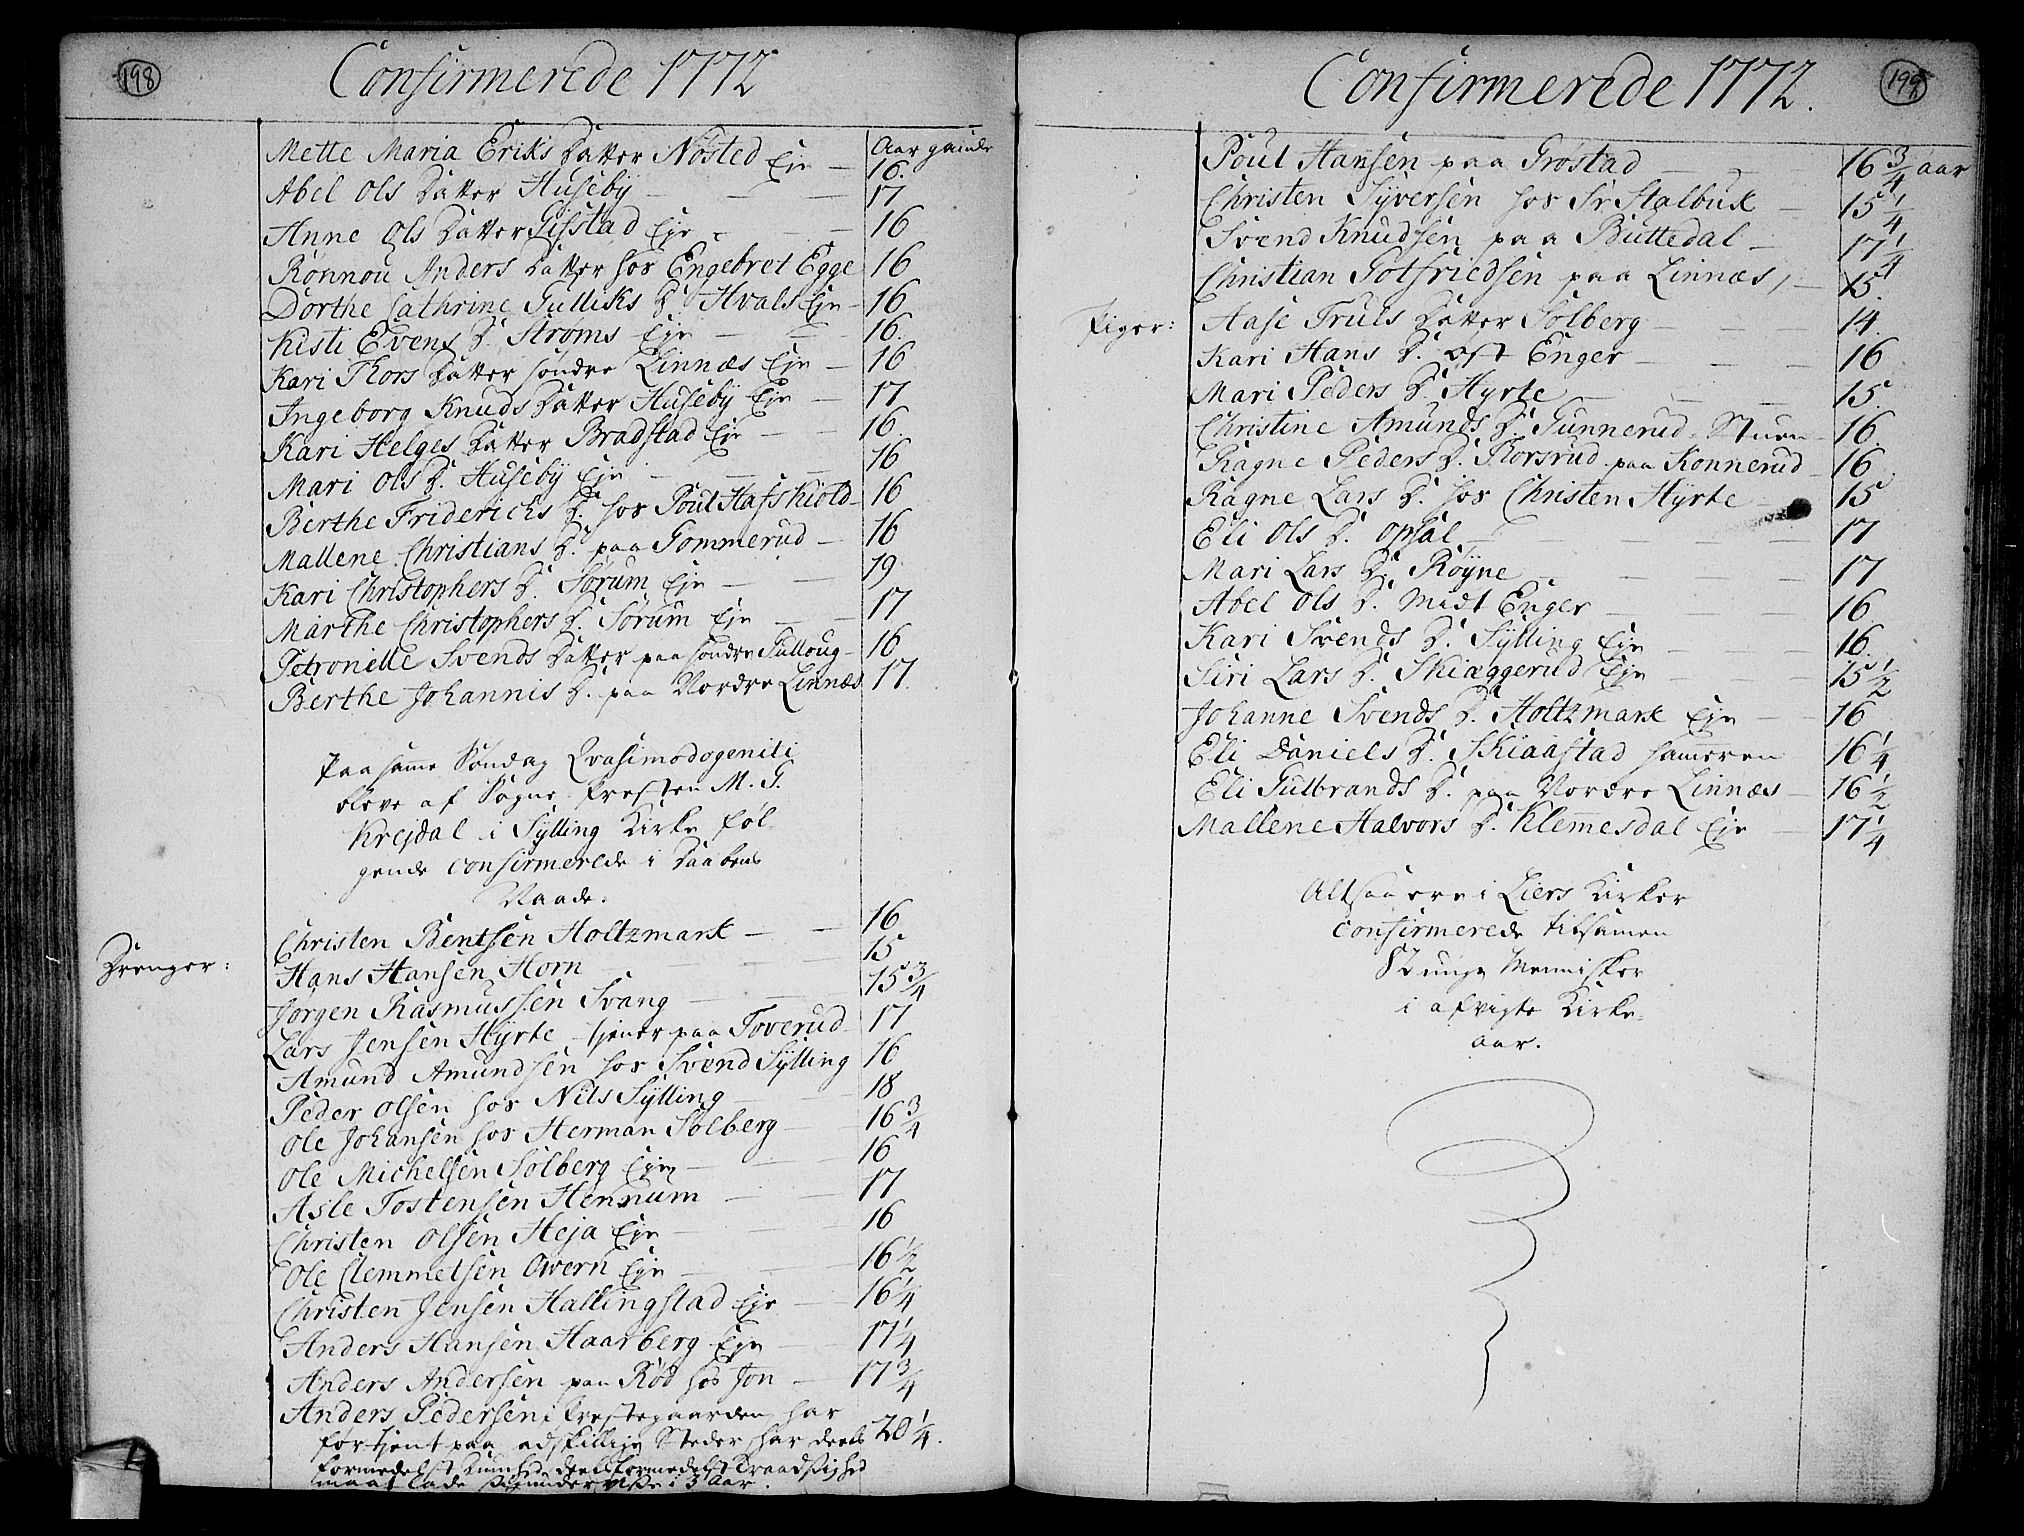 198
Confirmerede 1772
Aar gamle
Mette Maria Eriks Datter Nøsted Eje — 16.
Abel Ols Datter Huseby — 17
Anne Ols Datter Gisstad Eje — 16
Rønnou Anders Datter hos Engebret Egge 16
Dorthe Cathrine Gulliks D. Hvals Eje — 16
Kisti Evens D. Strøms Eje — 16.
Kari Thors Datter søndre Linnæs Eje — 16
Ingeborg Knuds Datter Huseby Eje — 17
Kari Helges Datter Bradstad Eje — 16.
Mari Ols D. Huseby Eje — 16
Berthe Friderichs D. hos Poul Hafskiold — 16
Mallene Christians D. paa Gommerud — 16
Kari Christophers D. Sørum Eje — 19
Marthe Christophers D. Sørum Eje — 17
Petronelle Svends Datter paa søndre Tulloug — 16
Berthe Johannis D. paa Nordre Linnæs 17.
Paa samme Søndag Qvasimodogeniti
bleve af Sogne-Præsten M. G.
Krejdal i Sylling Kirke føl-
gende confirmerede i Daabens
Naade.
Christen Bentsen Holtzmark — 16
Drenger:
Hans Hansen Horn — 15
Jørgen Rasmussen Svang — 15 3/4
Lars Jensen Hyrte tjener paa Toverud — 17
Amund Amundsen hos Svend Sylling 16
Peder Olsen hos Nils Sylling — 18
Ole Johansen hos Herman Solberg — 16 3/4
Ole Michelsen Solberg Eje — 16
Asle Tostensen Hennum — 17
Christen Olsen Heja Eje — 16
Ole Clemmetsen Overn Eje — 16 1/2
Christen Jensen Hallingstad Eje — 16 1/4
Anders Hansen Haarberg Eje — 17 1/4
Anders Andersen paa Rød hos Jon — 17 3/4
Anders Pedersen i Præstegaarden, har
før tjent paa adskillige Steder, har deels 20 1/4.
formedelst Dumhed, deels formedelst Traadsighed
maat lade sig underviise i 3 Aar.
199
Confirmerede 1772.
Poul Hansen paa Grøstad — 16 3/4 aar
Christen Syversen hos Sr Stalbuk — 15 1/4
Svend Knudsen paa Buttedal — 17 1/4
Christian Gotfriedsen paa Linnæs, — 15.
Piger: Aase Truls Datter Solberg — 14.
Kari Hans D. øst Enger — 16
Mari Peders D. Hyrte — 15.
Christine Amunds D. Gunnerud-Stuen — 16.
Ragne Peders D. Thorsrud paa Konnerud — 16
Ragne Lars D. hos Christen Hyrte — 15
Eli Ols D. Opsal — 17
Mari Lars D. Røyne — 17
Abel Ols D. Midt Enger — 16
Kari Svends D. Sylling Eje — 16.
Siri Lars D. Skiæggerud Eje — 15 1/2
Johanne Svends D. Holtzmark Eje — 16
Eli Daniels D. Skiaastad Hammeren 16 1/4
Eli Gulbrands D. paa Nordre Linnæs — 16 1/2
Mallene Halvors D. Klemmesdal Eje — 17 1/4
Altsaa ere i Liers Kirker
confirmerede tilsamen
82 unge Mennisker
i afvigte Kirke-
aar.